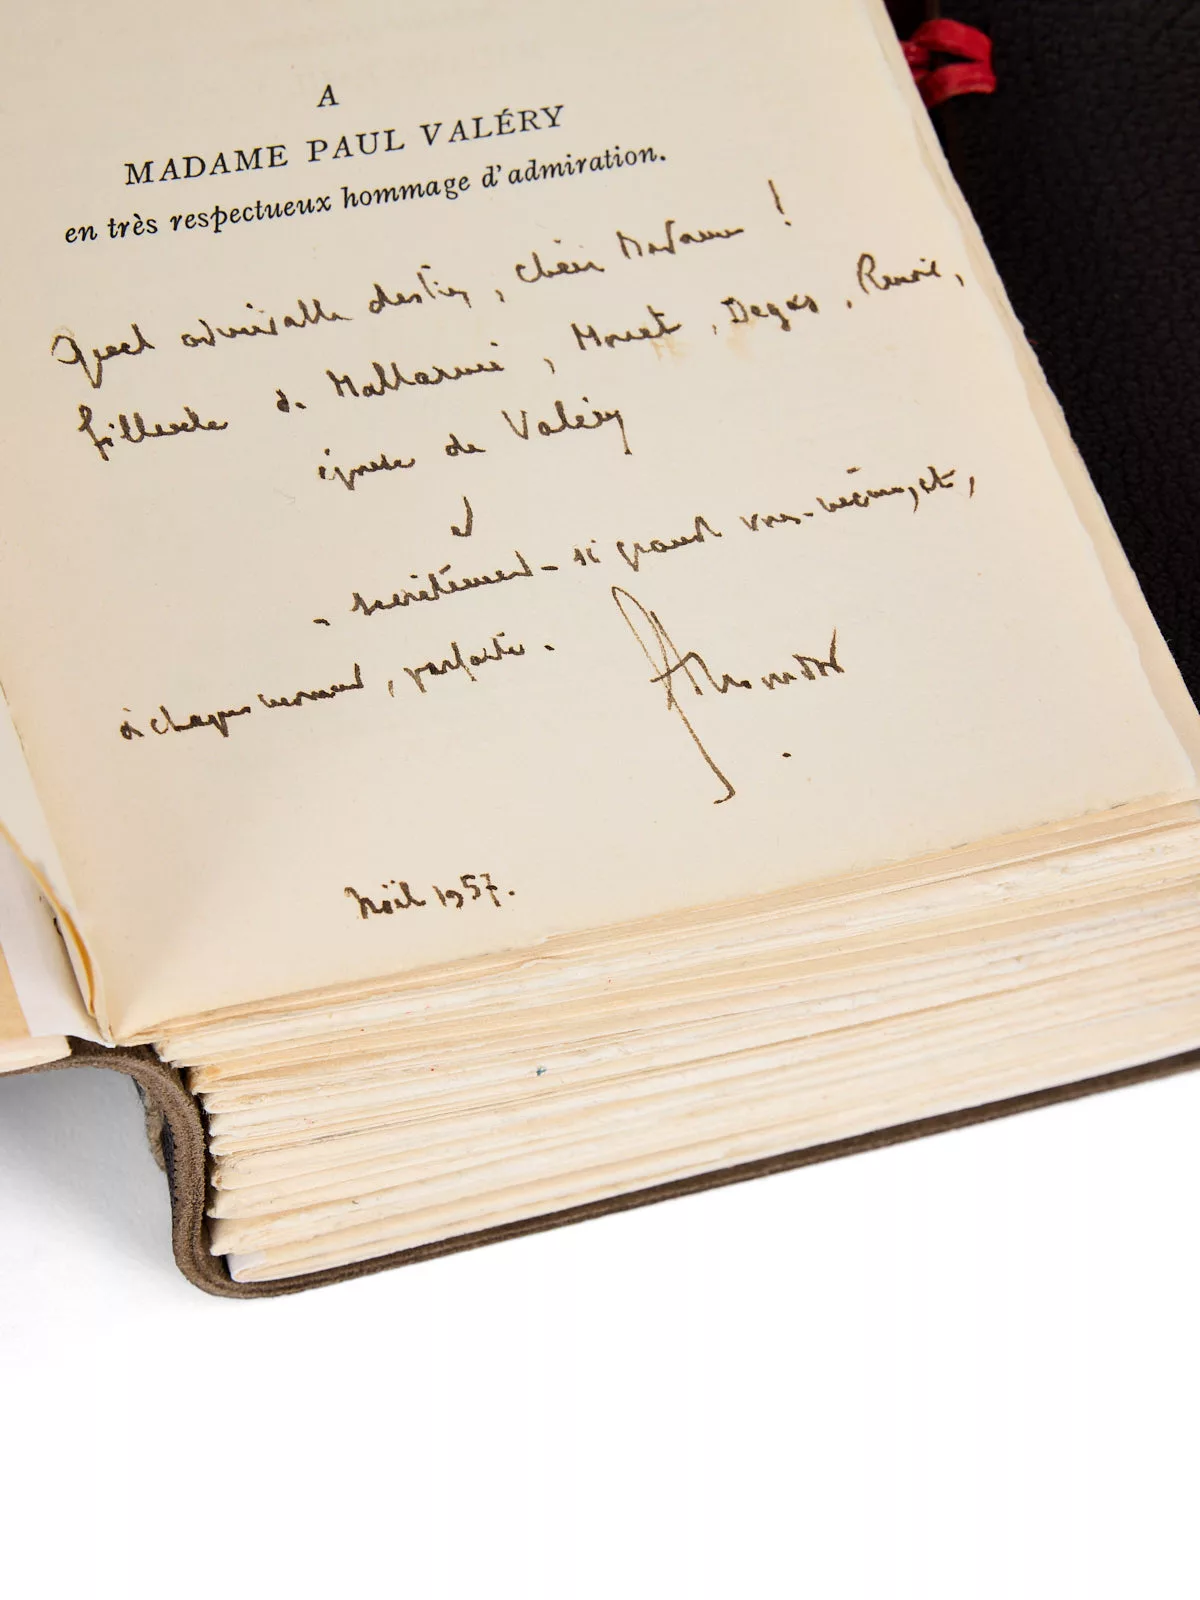 A
MADAME PAUL VALÉRY
en très respectueux hommage d'admiration.
Quel admirable destin, chère Madame !
filleule de Mallarmé, Monet, Degas, Renoir,
épouse de Valéry
et
- secrètement - si grande vous-même, et,
à chaque moment, parfaite.
Noël 1957.